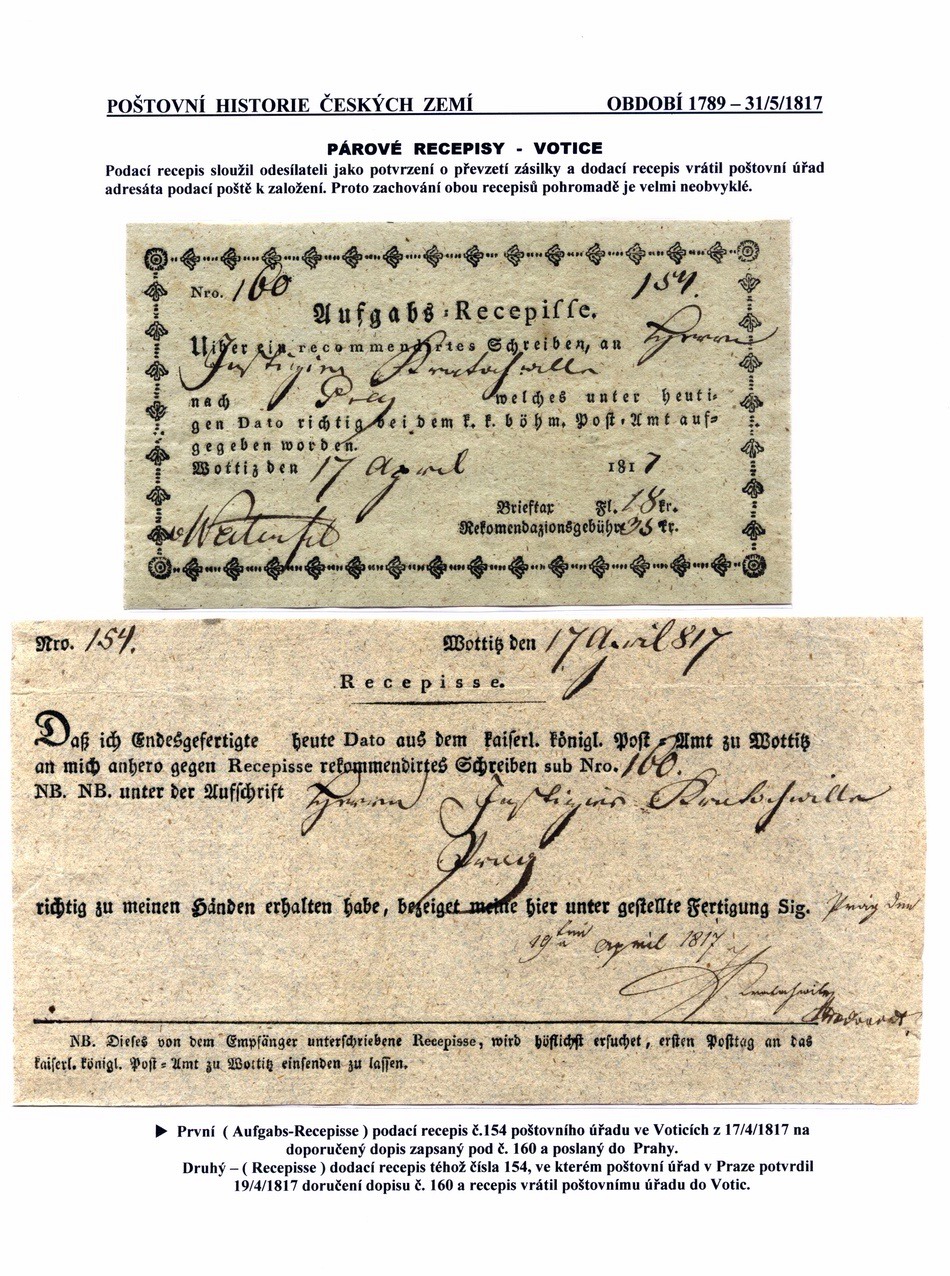 POŠTOVNÍ HISTORIE ČESKÝCH ZEMÍ OBDOBÍ 1789 – 31/5/1817
PÁROVÉ RECEPISY - VOTICE
Podací recepis sloužil odesílateli jako potvrzení o převzetí zásilky a dodací recepis vrátil poštovní úřad
adresáta podací poště k založení. Proto zachování obou recepisů pohromadě je velmi neobvyklé.
Nro. 160 154.
Aufgabs-Recepisse.
Uiber ein recommendirtes Schreiben, an Herrn
Justizier Kratochwille
nach Prag welches unter heuti-
gen Dato richtig bei dem k. k. böhm. Post-Amt auf-
gegeben worden.
Wottitz den 17 April 1817
Brieftax Fl. 18 kr.
Rekomendazionsgebühr 35 kr.
Nro. 154. Wottitz den 17 April 817
Recepisse.
Daß ich Endesgefertigte heute Dato aus dem kaiserl. königl. Post-Amt zu Wottitz
an mich anhero gegen Recepisse rekommendirtes Schreiben sub Nro. 160.
NB. NB. unter der Aufschrift Herrn Justizier Kratochwille
Prag
richtig zu meinen Händen erhalten habe, bezeiget meine hier unter gestellte Fertigung Sig. Prag den
19ten April 1817
Kratochwile
NB. Dieses von dem Empfänger unterschriebene Recepisse, wird höflichst ersuchet, ersten Posttag an das
kaiserl. königl. Post-Amt zu Wottitz einsenden zu lassen.
► První ( Aufgabs-Recepisse ) podací recepis č.154 poštovního úřadu ve Voticích z 17/4/1817 na
doporučený dopis zapsaný pod č. 160 a poslaný do Prahy.
Druhý – ( Recepisse ) dodací recepis téhož čísla 154, ve kterém poštovní úřad v Praze potvrdil
19/4/1817 doručení dopisu č. 160 a recepis vrátil poštovnímu úřadu do Votic.